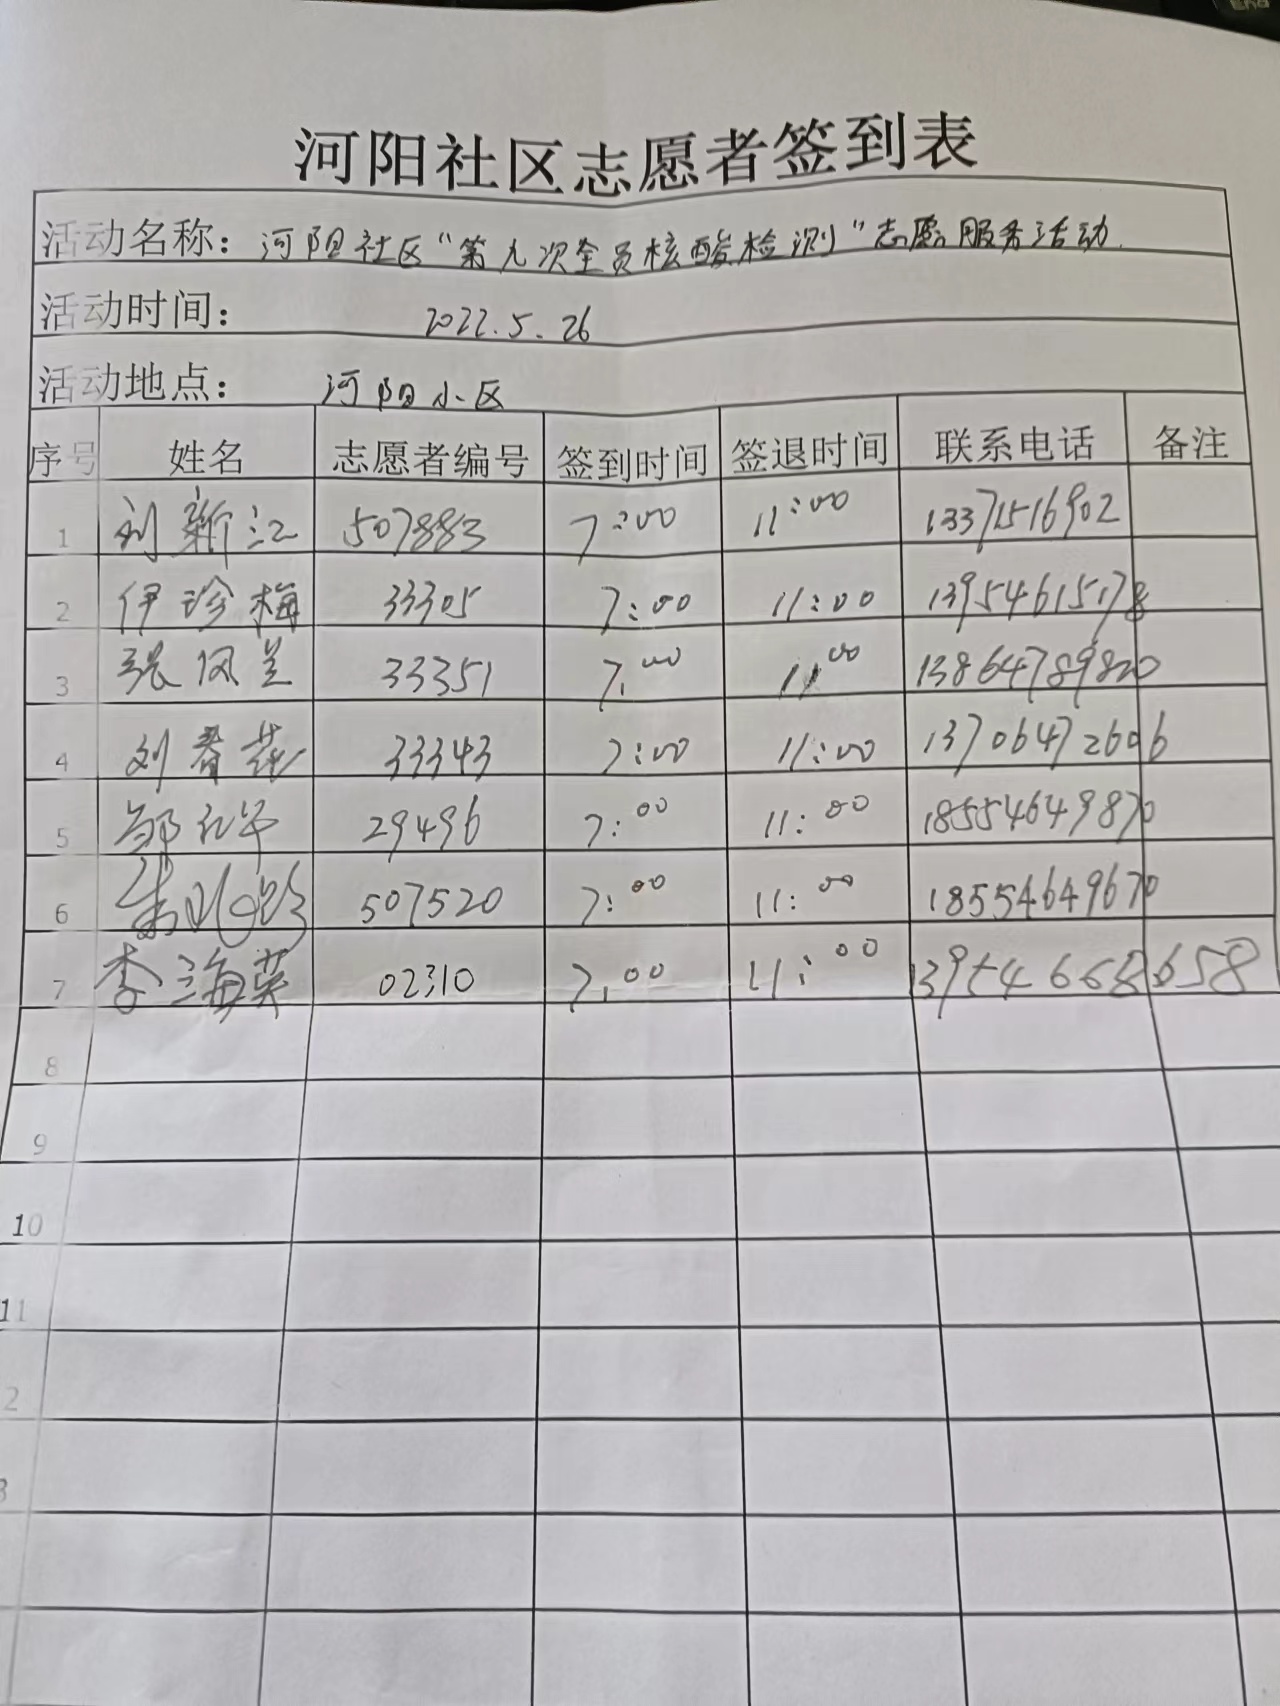 河阳社区志愿者签到表
活动名称：河阳社区“第九次全员核酸检测”志愿服务活动
活动时间： 2022.5.26
活动地点： 河阳小区
序号 姓名 志愿者编号 签到时间 签退时间 联系电话 备注
1 刘新江 507883 7:00 11:00 13371516902
2 伊珍梅 33305 7:00 11:00 13954615178
3 张凤兰 33351 7:00 11:00 13864789820
4 刘春花 33343 7:00 11:00 13706472606
5 邹 29496 7:00 11:00 18554649870
6 朱 507520 7:00 11:00 18554649670
7 李海英 02310 7:00 11:00 13954668658
8
9
10
11
2
3